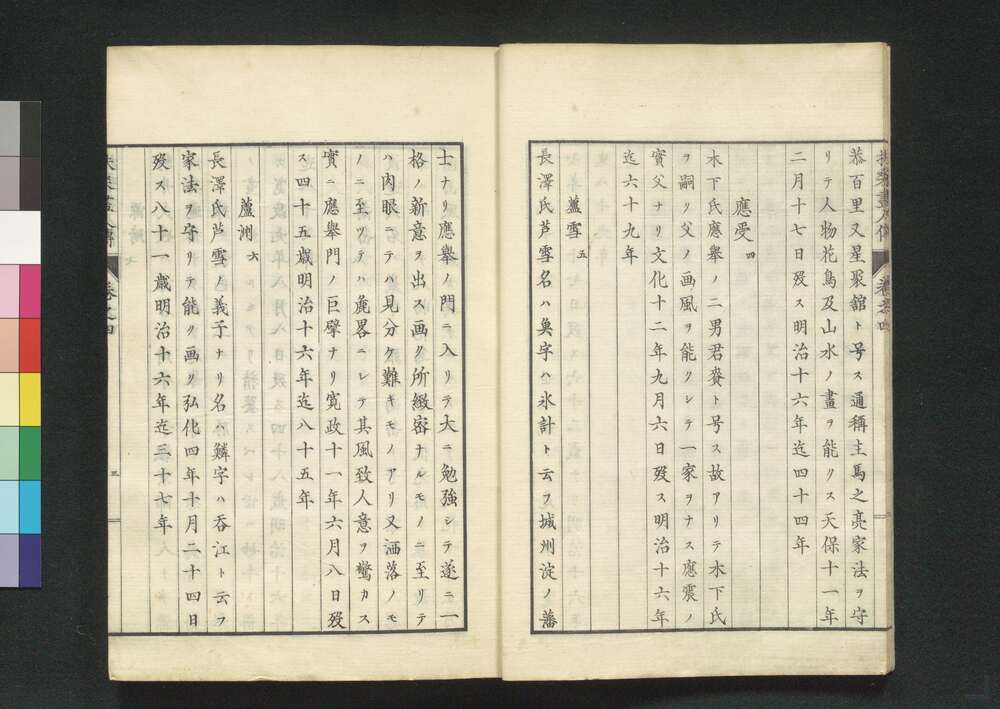 恭百里又星聚舘ト号ス通稱主馬之亮家法ヲ守
リテ人物花鳥及山水ノ畫ヲ能クス天保十一年
二月十七日歿ス明治十六年迄四十四年
應受 四
木下氏應舉ノ二男君賚ト号ス故アリテ木下氏
ヲ嗣リ父ノ画風ヲ能クシテ一家ヲナス應震ノ
實父ナリ文化十二年九月六日歿ス明治十六年
迄六十九年
蘆雪 五
長澤氏芦雪名ハ魚字ハ氷計ト云フ城州淀ノ藩
士ナリ應舉ノ門ニ入リテ大ニ勉強シテ遂ニ一
格ノ新意ヲ出ス画ク所緻密ナルモノニ至リテ
ハ肉眼ニテハ見分ケ難キモノアリ又洒落ノモ
ノニ至ツテハ麁畧ニシテ其風致人意ヲ驚カス
實ニ應舉門ノ巨擘ナリ寛政十一年六月八日歿
ス四十五歳明治十六年迄八十五年
蘆洲 六
長澤氏芦雪ノ義子ナリ名ハ鱗字ハ呑江ト云フ
家法ヲ守リテ能ク画ク弘化四年十月二十四日
歿ス八十一歳明治十六年迄三十七年
三